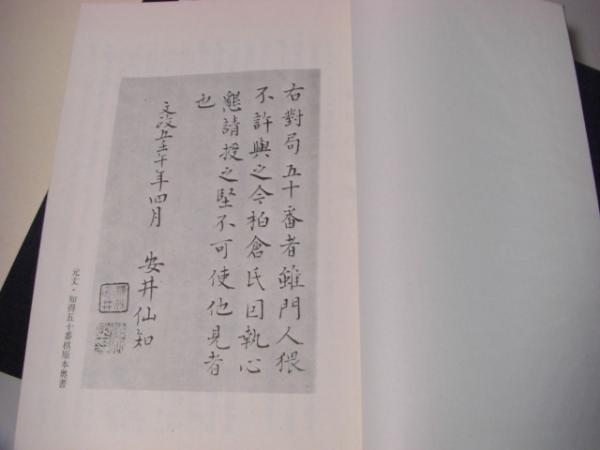 右對局五十番者雖門人猥
不許與之今柏倉氏因執心
懇請授之堅不可使他見者
也
文政五壬午年四月
安井仙知
元文・知得五十番棋原本奥書